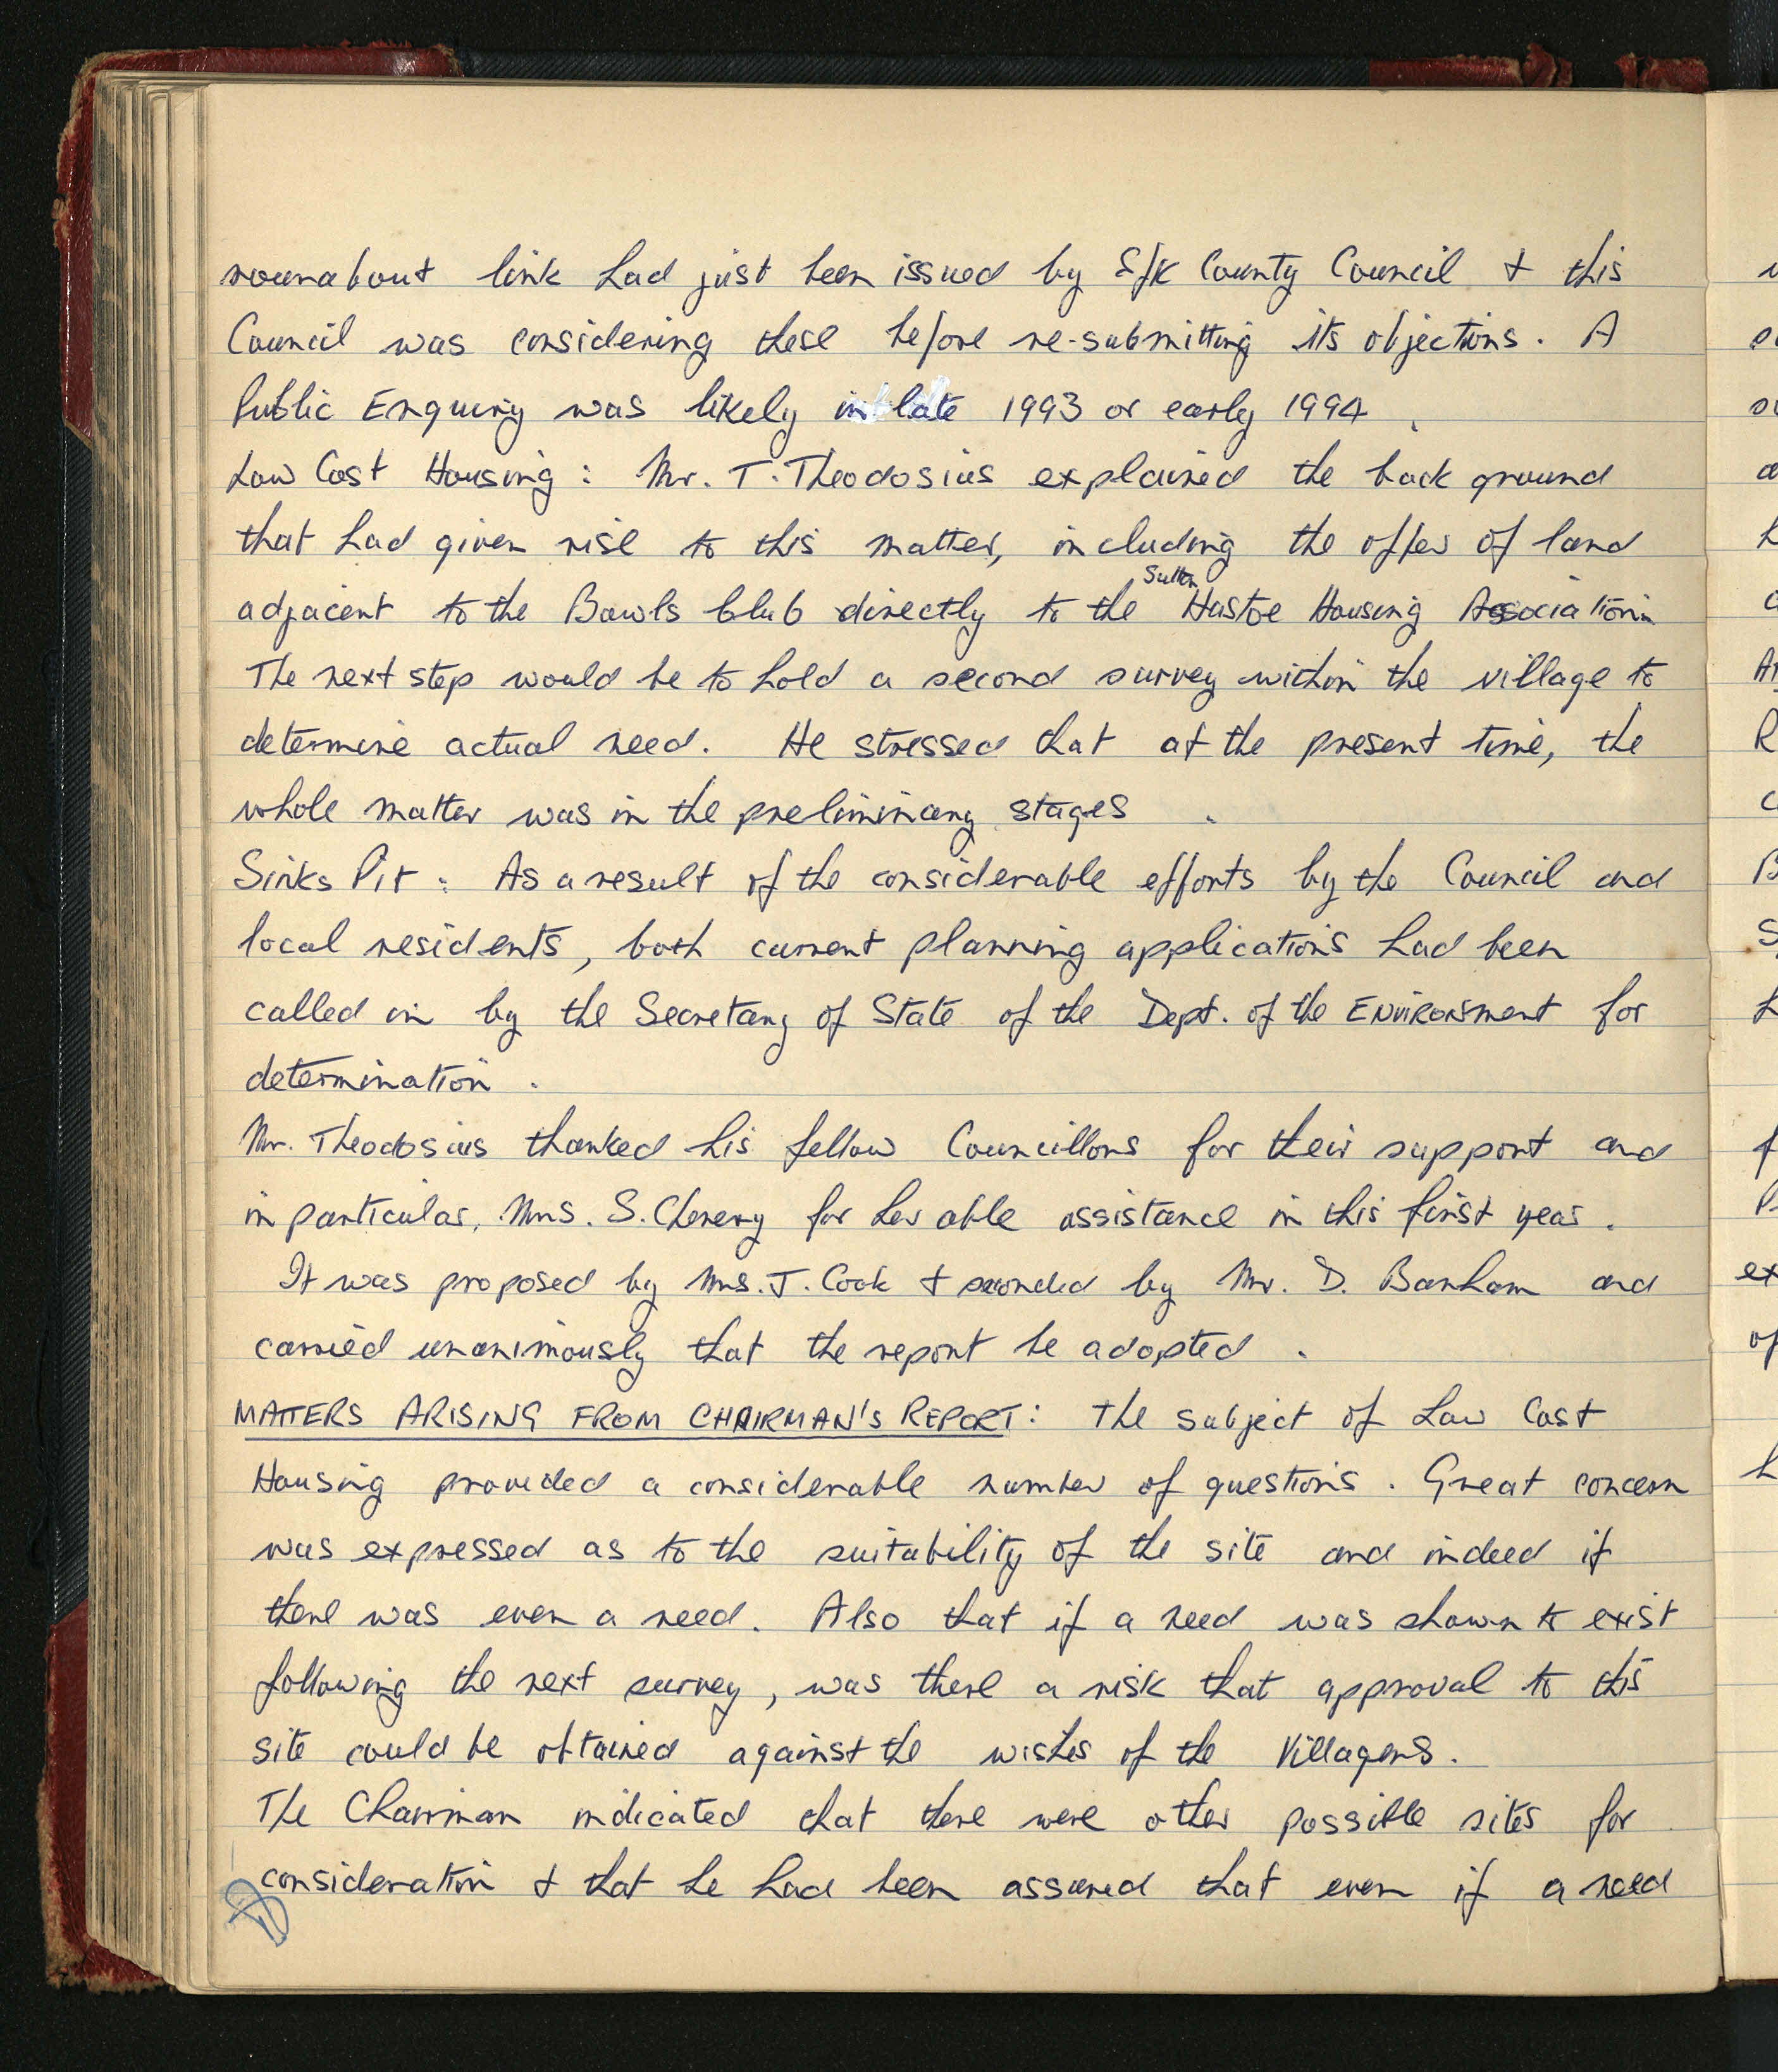 rounabout link had just been issued by S/K County Council & this
Council was considering these before re-submitting its objections. A
Public Enquiry was likely in late 1993 or early 1994.
Low Cost Housing: Mr. T. Theodosius explained the back ground
that had given rise to this matter, including the offer of land
adjacent to the Bowls Club directly to the Sutton Hastoe Housing Association.
The next step would be to hold a second survey within the village to
determine actual need. He stressed that at the present time, the
whole matter was in the preliminary stages.
Sinks Pit: As a result of the considerable efforts by the Council and
local residents, both current planning applications had been
called in by the Secretary of State of the Dept. of the Environment for
determination.
Mr. Theodosius thanked his fellow Councillors for their support and
in particular, Mrs. S. Chenery for her able assistance in this first year.
It was proposed by Mrs. J. Cook & seconded by Mr. D. Barham and
carried unanimously that the report be adopted.
MATTERS ARISING FROM CHAIRMAN'S REPORT: The subject of Low Cost
Housing provided a considerable number of questions. Great concern
was expressed as to the suitability of the site and indeed if
there was even a need. Also that if a need was shown to exist
following the next survey, was there a risk that approval to this
site could be obtained against the wishes of the Villagers.
The Chairman indicated that there were other possible sites for
consideration & that he had been assured that even if a need